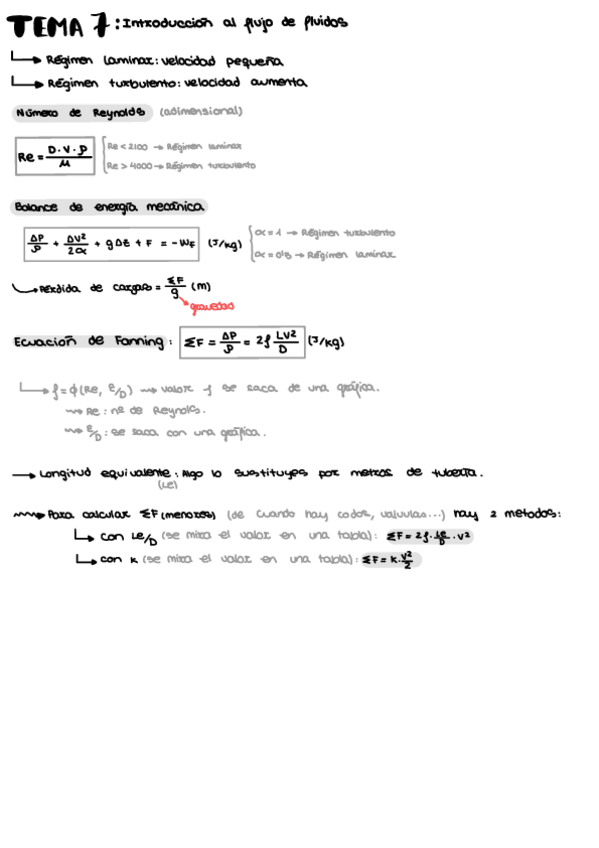 TEMA 7: Introducción al flujo de fluidos
→ Régimen laminar: velocidad pequeña
→ Régimen turbulento: velocidad aumenta
Número de Reynolds (adimensional)
Re = D·V·ρ / μ { Re < 2100 → Régimen laminar
Re > 4000 → Régimen turbulento
Balance de energía mecánica
ΔP/ρ + ΔV²/2α + gΔz + F = -WF (J/kg) { α = 1 → Régimen turbulento
α = 0'5 → Régimen laminar
→ Pérdida de cargas = ΣF/g (m)
gravedad
Ecuación de Fanning: ΣF = ΔP/ρ = 2f LV²/D (J/kg)
→ f = φ(Re, ε/D) → valor f se saca de una gráfica.
→ Re: nº de Reynolds.
→ ε/D: se saca con una gráfica.
→ Longitud equivalente: Algo lo sustituyes por metros de tubería.
(Le)
→ Para calcular ΣF(menores) (de cuando hay codos, valvulas...) hay 2 metodos:
→ con Le/D (se mira el valor en una tabla): ΣF = 2f·Le/D·V²
→ con K (se mira el valor en una tabla): ΣF = K·V²/2